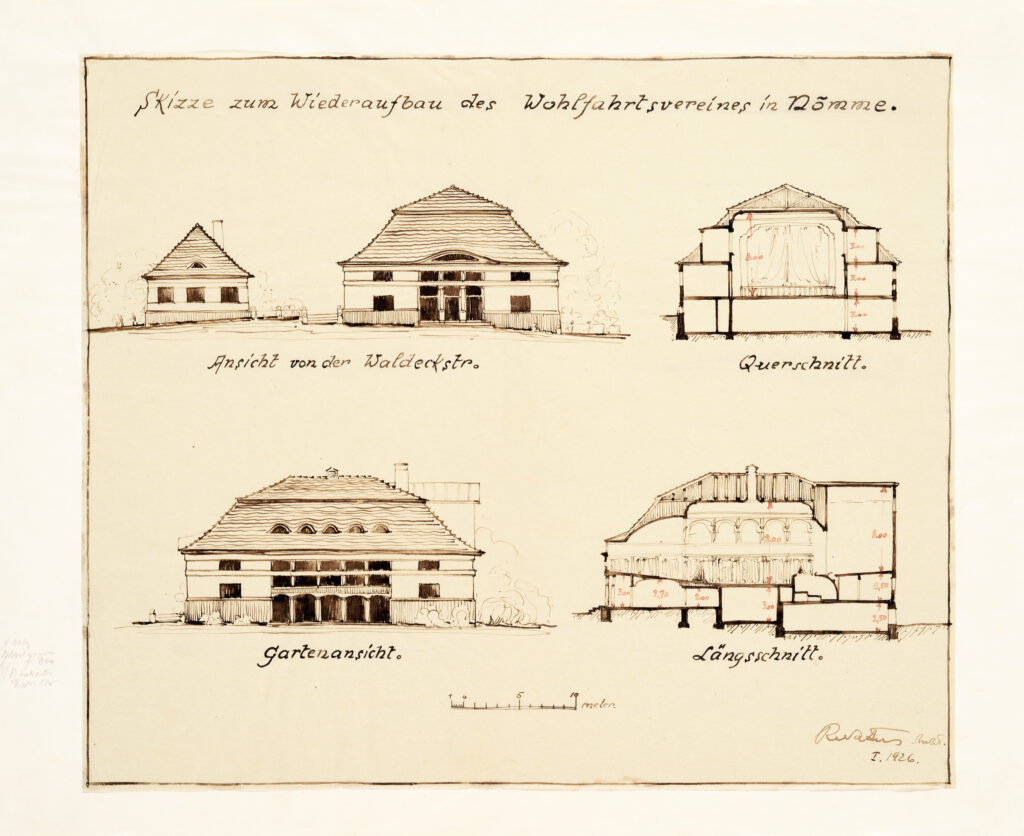 Skizze zum Wiederaufbau des Wohlfahrtsvereines in Nõmme.
8.00
3.00
3.00
3.00
Ansicht von der Waldeckstr.
Querschnitt.
8.00
8.00
3.00
2.70
2.00
3.00
2,50
2,50
Gartenansicht.
Längsschnitt.
1 0 5 10 meter
I. 1926.